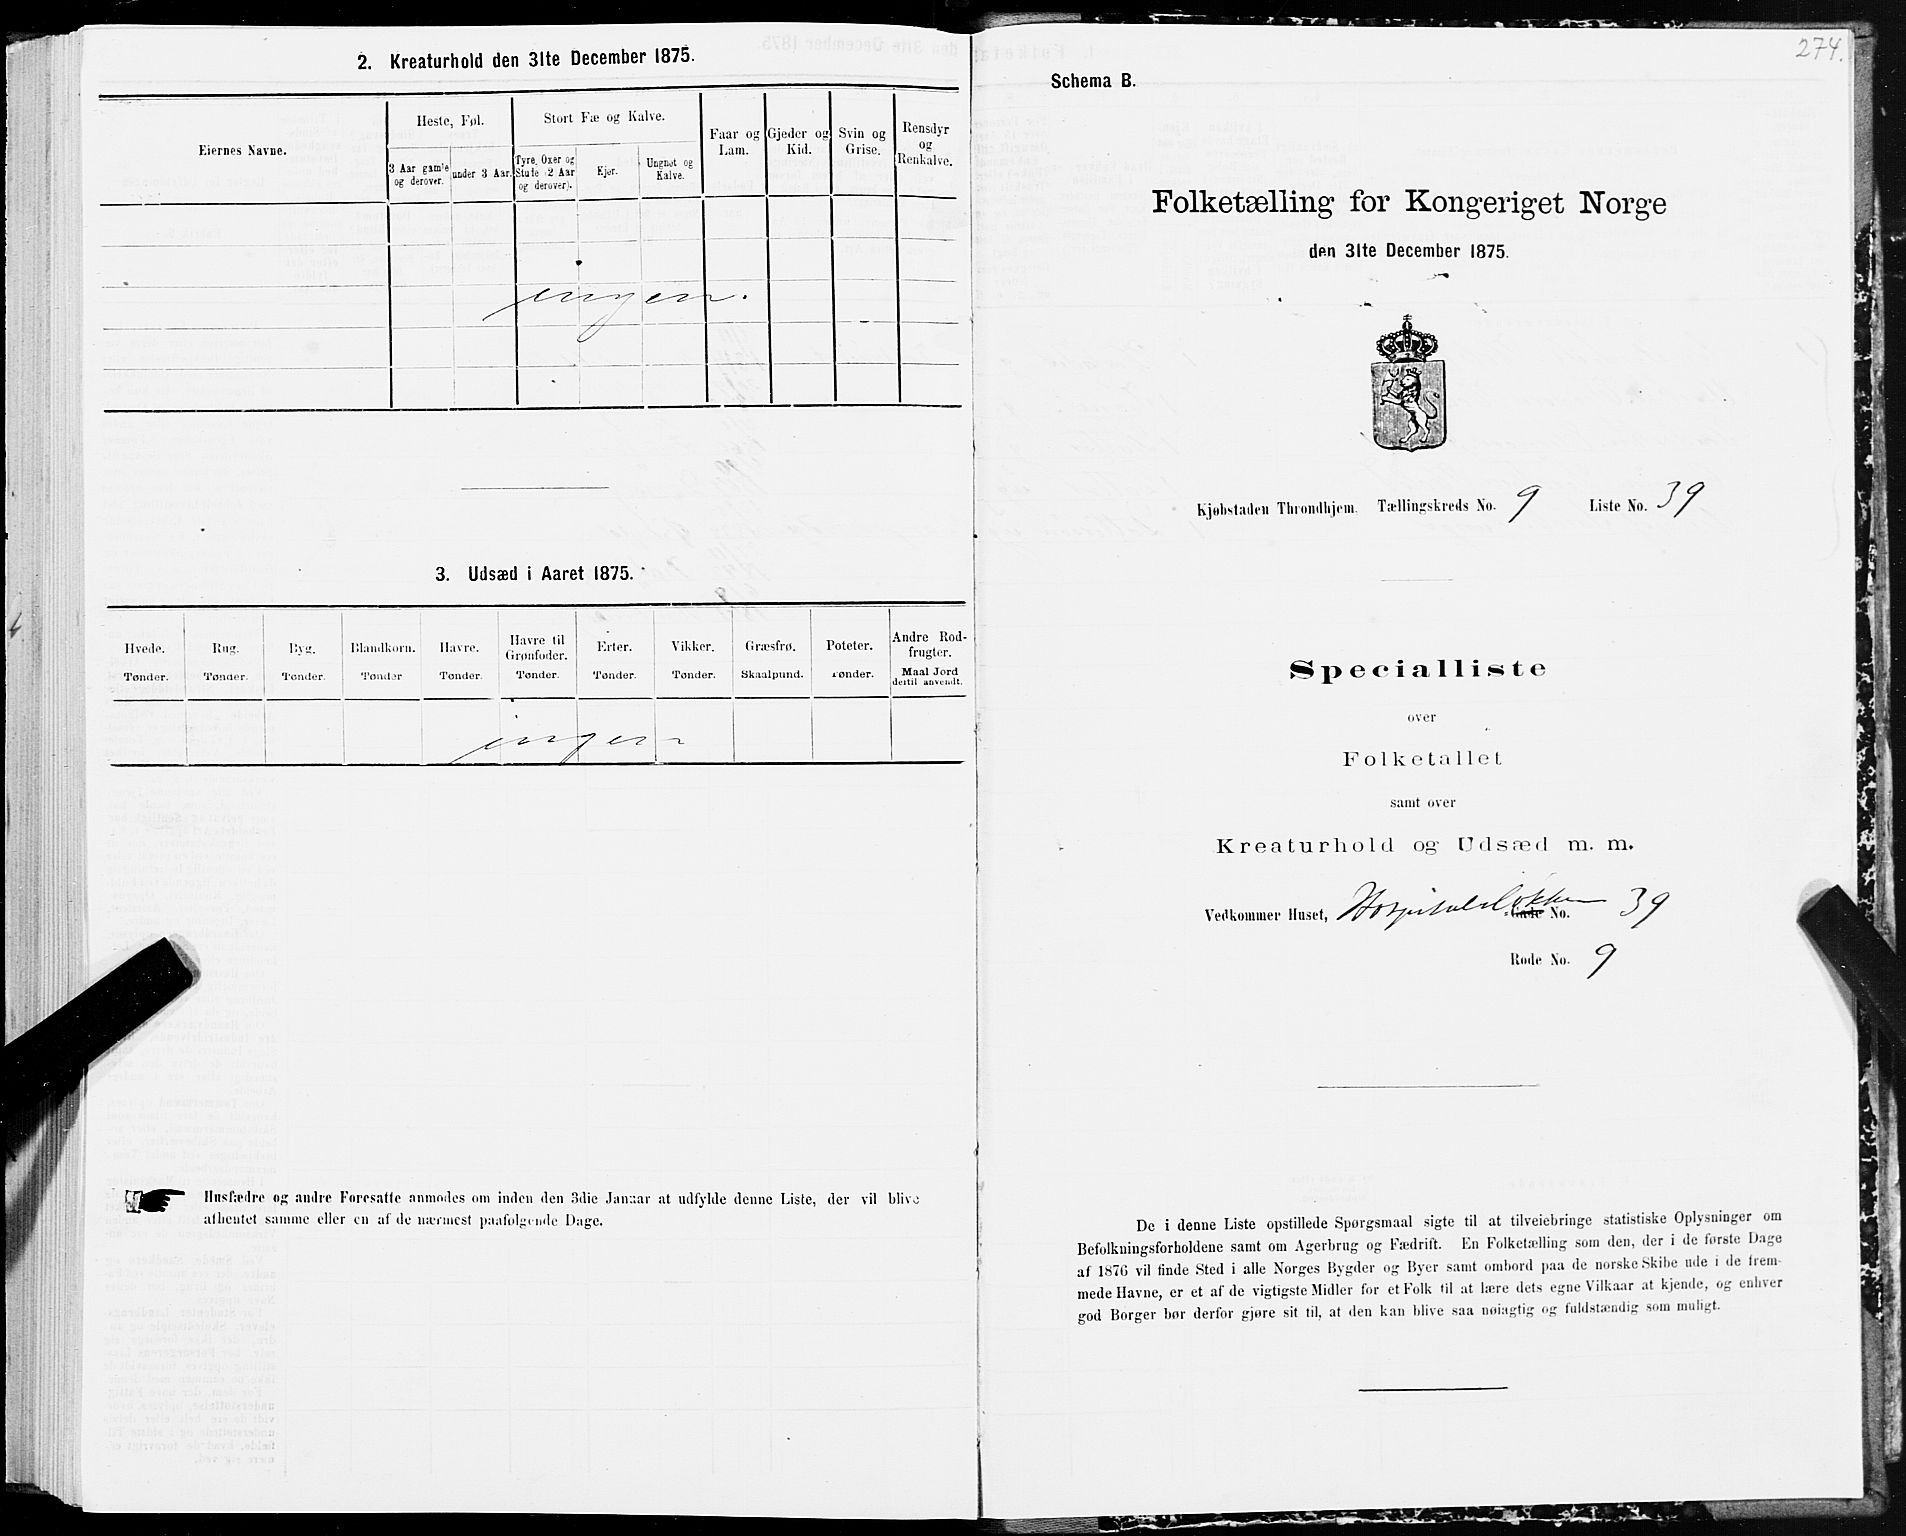 2. Kreaturhold den 31te December 1875.
Eiernes Navne.
Heste, Føl.
Stort Fæ og Kalve.
Faar og Lam.
Gjeder og Kid.
Svin og Grise.
Rensdyr og Renkalve.
3 Aar gamle og derover.
under 3 Aar.
Tyre, Oxer og Stute (2 Aar og derover).
Kjør.
Ungnøt og Kalve.
ingen.
3. Udsæd i Aaret 1875.
Hvede. Rug. Byg. Blandkorn. Havre. Havre til Grønfoder. Erter. Vikker. Græsfrø. Poteter. Andre Rodfrugter.
Tønder. Tønder. Tønder. Tønder Tønder. Tønder. Tønder. Tønder. Skaalpund. Tønder. Maal Jord dertil anvendt.
ingen
Husfædre og andre Foresatte anmodes om inden den 3die Januar at udfylde denne Liste, der vil blive
afhentet samme eller en af de nærmest paafølgende Dage.
274.
Schema B.
Folketælling for Kongeriget Norge
den 31te December 1875.
Kjøbstaden Throndhjem. Tællingskreds No. 9 Liste No. 39
Specialliste
over
Folketallet
samt over
Kreaturhold og Udsæd m. m.
Vedkommer Huset, Hospitalsløkken Gade No. 39
Rode No. 9
De i denne Liste opstillede Spørgsmaal sigte til at tilveiebringe statistiske Oplysninger om
Befolkningsforholdene samt om Agerbrug og Fædrift. En Folketælling som den, der i de første Dage
af 1876 vil finde Sted i alle Norges Bygder og Byer samt ombord paa de norske Skibe ude i de frem-
mede Havne, er et af de vigtigste Midler for et Folk til at lære dets egne Vilkaar at kjende, og enhver
god Borger bør derfor gjøre sit til, at den kan blive saa nøiagtig og fuldstændig som muligt.